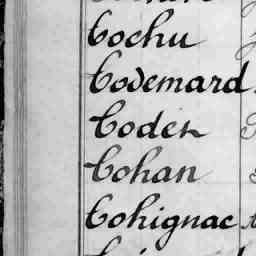 Cochu
Codemard
Codet
Cohan
Cohignac